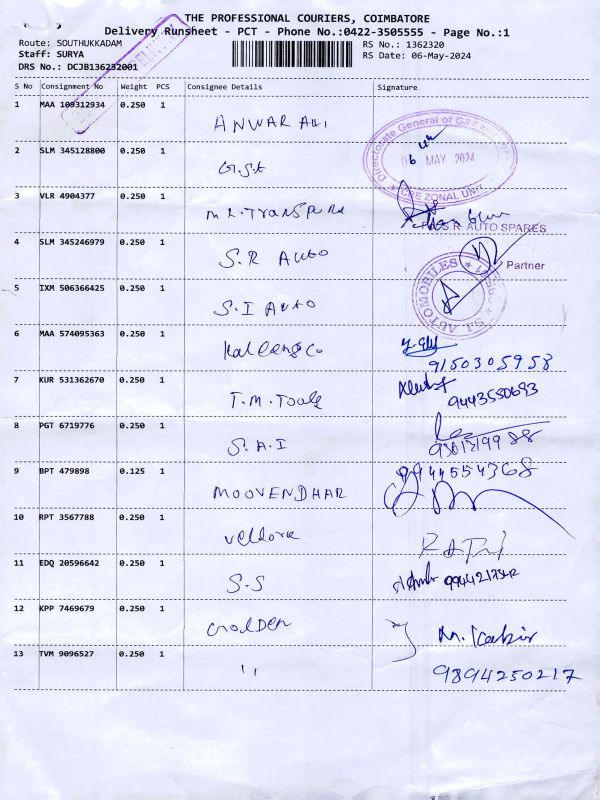 THE PROFESSIONAL COURIERS, COIMBATORE
Delivery Runsheet - PCT - Phone No.:0422-3505555 - Page No.:1
Route: SOUTHUKKADAM
RS No.: 1362320
Staff: SURYA
RS Date: 06-May-2024
DRS No.: DCJB136232001
S No Consignment No Weight PCS Consignee Details Signature
1 MAA 109312934 0.250 1 ANWAR ALI
Directorate General of
06 MAY 2024
ZONAL UNIT
2 SLM 345128800 0.250 1 G.S.T
3 VLR 4904377 0.250 1 M.R. Transpura
S.R AUTO SPARES
4 SLM 345246979 0.250 1 S.R AUTO
Partner
5 IXM 506366425 0.250 1 S.I AUTO
S.I. AUTOMOBILES
6 MAA 574095363 0.250 1 9150305958
7 KUR 531362670 0.250 1 T.M. Tools 9443550693
8 PGT 6719776 0.250 1 S.A.I
9 BPT 479898 0.125 1 MOOVENDHAR 9944554368
10 RPT 3567788 0.250 1 Vellore
11 EDQ 20596642 0.250 1 S.S
12 KPP 7469679 0.250 1 GOLDEN M. Kabir
13 TVM 9096527 0.250 1 " 9894250217